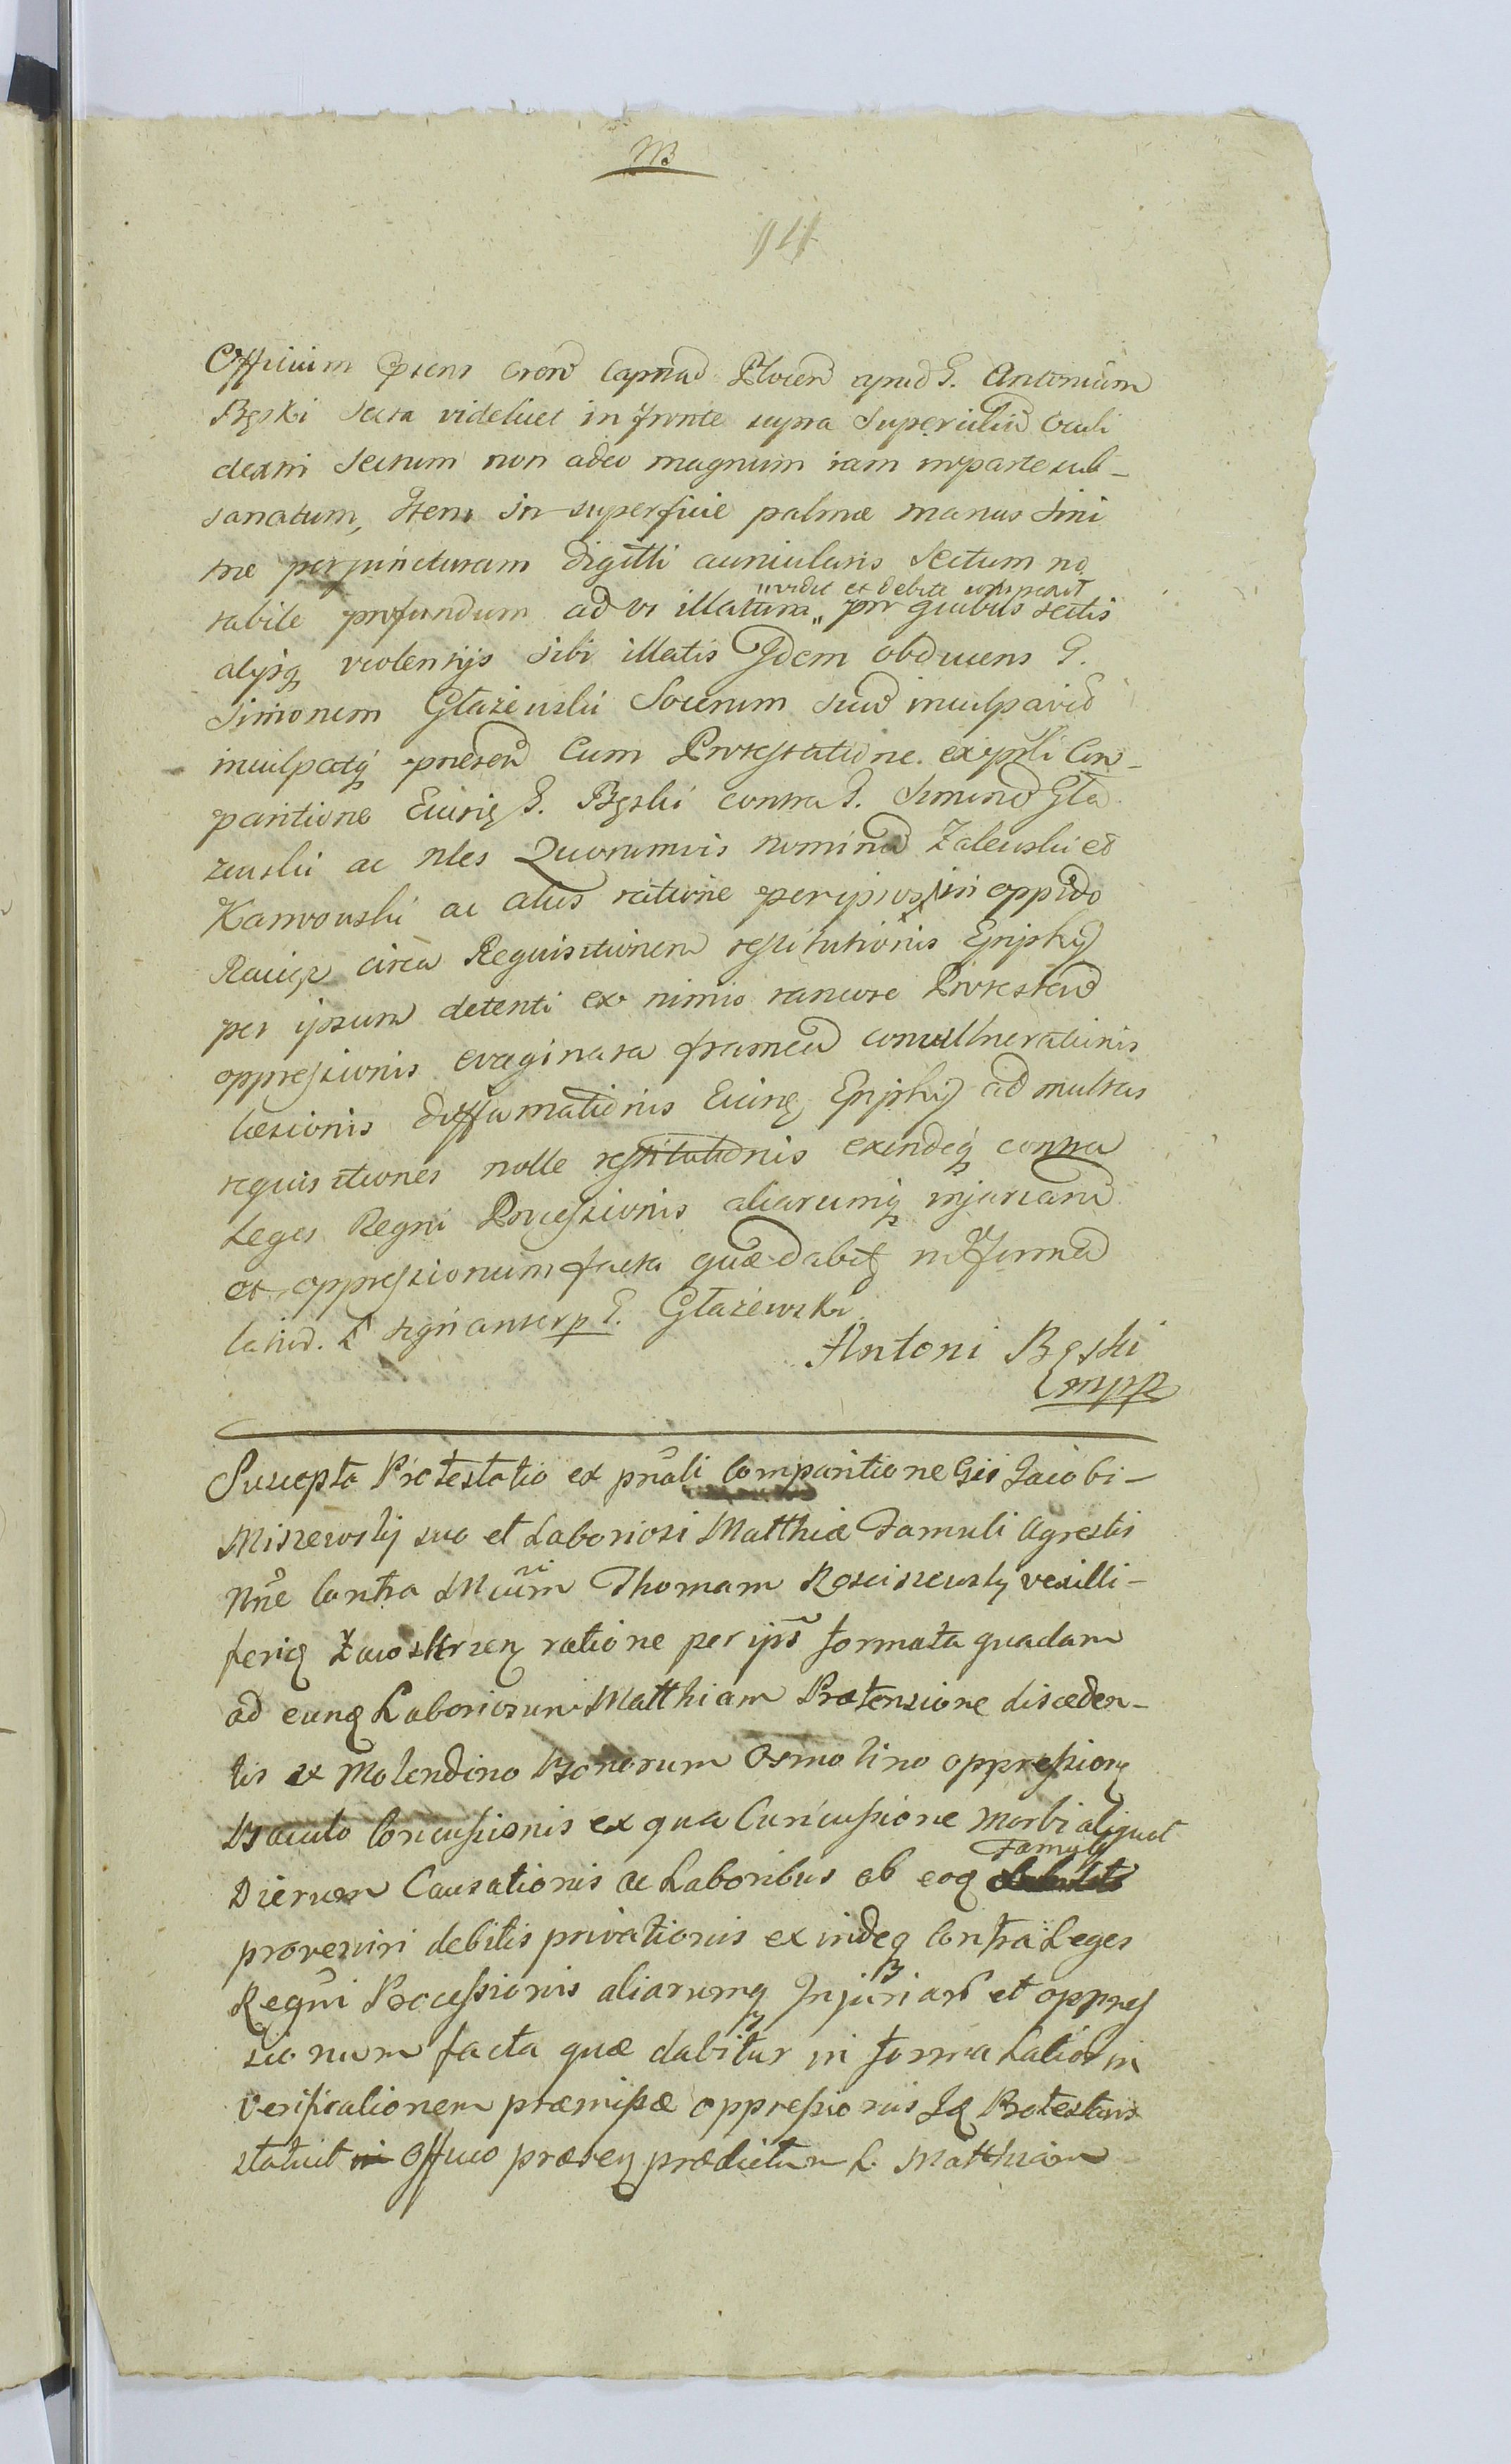 Officium apud G. Antonium
Bęski secta videlicet in fronte supra supercilium oculi
dextri sectum non adeo magnum iam in parte sub-
sanatum, Item in superficie palmæ manus sini
træ per juncturam digitti auricularis sectum no
vidit et debite comperuit
tabile profundum ad os illatum „ pro quibus sectis
alysq violentijs sibi illatis Idem obducens G.
Simonem Głażewski Socerum suum inculpavit
inculpatq præsen Cum Protestatione. ex prsli Com-
paritione Eiusdę G. Bęski contra G. Simonem Gła
zewski ac Nles Quorumvis nominum Zalewski et
Karwowski ac alios ratione per ipsos in oppido
Raciąz circa Requisitionem restitutionis Epiphij
per ipsum detenti ex nimio rancore Protestem
oppressionis evaginata framea convulnerationis
læsionis diffamationis Eiusdę Epiphij ad multas
requisitiones nolle restitutionis exindeq contra
Leges Regni Processionis aliarumq injuriarum
et oppressionum facta quæ dabitę in Forma
latiori. signanter p G. Głażewski
Antoni Bęski
mpp
Suscepta Protestatio ex prsñali Comparitione Gsi Jacobi-
Miszewsky suo et Laboriosi Matthiæ Famuli Agrestis
Nñe Contra Mcum Thomam Rosciszewsky vexilli-
ferię Zawskrzeń ratione per ips formata quadam
ad eunq Laboriosum Matthiam Prætensione discæden-
tis ex Molendino Bonorum Osmolino oppressioñ
Baculo Concussionis ex qua Concussione Morbi aliquot
Famuly
Dierum Causationis ac Laboribus ab eoq
proveniri debitis privationis ex indeq Contra Leges
Regni Processionis aliarumq Injuriarum et oppres
sionum facta quæ dabitur in forma Latiori in
verificationem præmissæ oppressionis Id Protestans
statuit in Officio præsen prædictum L. Matthiam